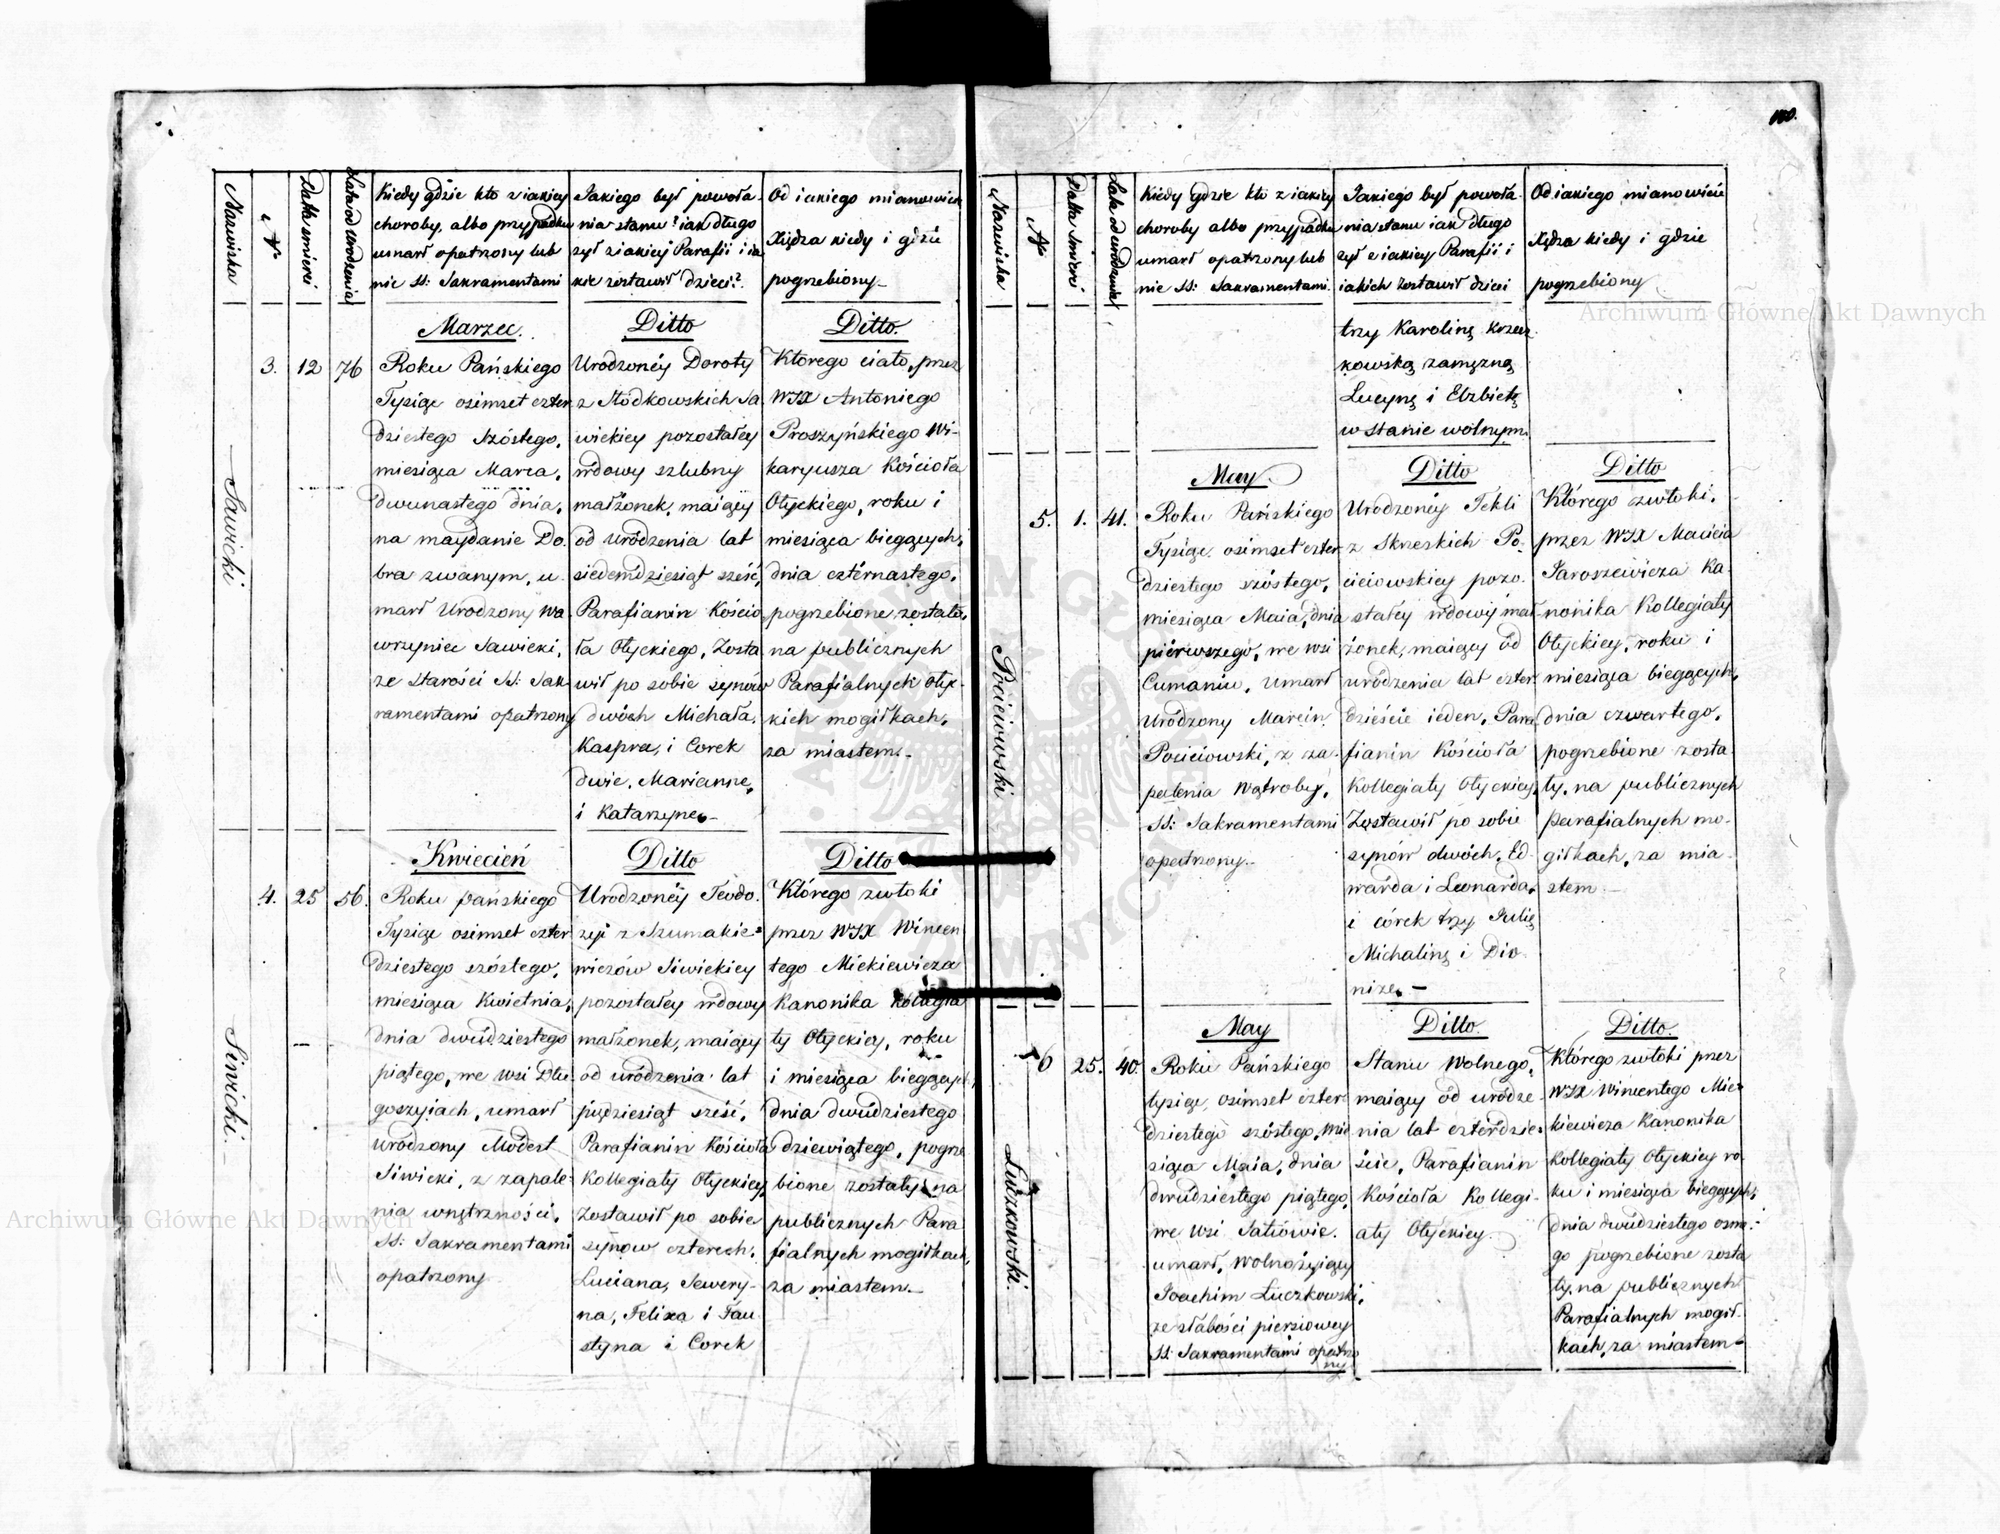 Nazwiska
N
Data smierci
Lata od Urodzenia
Kiedy gdzie kto z iakiey
choroby, albo przypadku
umarł opatrzony lub
nie SS: Sakramentami
Jakiego był powoła-
nia stanu? iak długo
żył z iakiey Parafii i ia
kie zostawił dzieci?
Od iakiego mianowicie
Xiędza kiedy i gdzie
pogrzebiony
Sawicki
3. 12 76
Marzec.
Roku Pańskiego
Tysiąc osimset czter
dziestego szóstego,
miesiąca Marca,
dwunastego dnia,
na maydanie Do.
bra zwanym, u.
marł Urodzony Wa.
wrzyniec Sawicki,
ze starości SS: Sak-
ramentami opatrzony
Ditto
Urodzonéy Doroty
z Słodkowskich Sa.
wickiey pozostałey
wdowy szlubny
małżonek, maiący
od urodzenia lat
siedemdziesiąt sześć,
Parafianin Kościo.
ła Ołyckiego, Zosta
wił po sobie synów
dwóch Michała,
Kaspra, i Corek
dwie, Mariannę,
i Katarzynę.
Ditto.
Ktorego ciało, przez
WJX Antoniego
Proszyńskiego Wi-
karyusza Kościoła
Ołyckiego, roku i
miesiąca bieżących,
dnia czternastego,
pogrzebione zostało,
na publicznych
Parafialnych Ołyc-
kich mogiłkach,
za miastem.
Siwicki.
4. 25 56.
Kwiecień
Roku pańskiego
Tysiąc osimset czter
dziestego szóstego,
miesiąca Kwietnia,
dnia dwudziestego
piątego, we wsi Dłu-
goszyiach, umarł
urodzony Modest
Siwicki, z zapale-
nia wnętrzności,
SS: Sakramentami
opatrzony
Ditto
Urodzonéy Teodo.
zyi z Szumakie-
wiczów Siwickiey
pozostałey wdowy
małżonek, maiący
od urodzenia lat
pięćdziesiąt sześć,
Parafianin Kościoła
Kollegiaty Ołyckiey,
Zostawił po sobie
synów czterech,
Luciana, Sewery-
na, Felixa i Fau
styna i Corek
Ditto
Którego zwłoki
przez WJX Wincen
tego Mickiewicza
Kanonika Kollegia
ty Ołyckiey, roku
i miesiąca bieżących,
dnia dwudziestego
dziewiątego, pogrze
bione zostały na
publicznych Para
fialnych mogiłkach,
za miastem.
100.
Nazwiska
N
Data Smierci
Lata od urodzenia
Kiedy gdzie kto z iakiey
choroby albo przypadku
umarł opatrzony lub
nie SS: Sakramentami.
Jakiego był powoła.
nia stanu iak długo
żył z iakiey Parafii i
iakich zostawił dzieci
Od iakiego mianowicie
Xiędza kiedy i gdzie
pogrzebiony
trzy Karolinę Krzecz
kowską zamężną
Lucynę i Elżbietę
w stanie wolnym.
Pociciowski
5. 1. 41.
May.
Roku Pańskiego
Tysiąc osimset czter
dziestego szóstego,
miesiąca Maia, dnia
pierwszego, we wsi
Cumaniu, umarł
Urodzony Marcin
Pociciowski, z za-
palenia wątroby,
SS: Sakramentami
opatrzony.
Ditto
Urodzonéy Tekli
z Skreskich Po-
ciciowskiey pozo.
stałey wdowy mał
żonek, maiący od
urodzenia lat czter
dzieście ieden, Para
fianin Kościoła
Kollegiaty Ołyckiey,
Zostawił po sobie
synów dwóch, Ed-
warda i Leonarda,
i córek trzy Julię
Michalinę i Dio
nizę.
Ditto
Którego zwłoki,
przez WJX Macieia
Jaroszewicza Ka-
nonika Kollegiaty
Ołyckiey, roku i
miesiąca bieżących,
dnia czwartego,
pogrzebione zosta
ły, na publicznych
parafialnych mo-
giłkach, za mia-
stem.
Łuczkowski.
6 25. 40.
May
Roku Pańskiego
tysiąc, osimset czter
dziestego szóstego, mie
siąca Maia, dnia
dwudziestego piątego,
we wsi
umarł, wolnożyiący
Joachim Łuczkowski,
ze słabości piersiowey
SS: Sakramentami opatrzo
ny.
Ditto.
Stanu wolnego,
maiący od urodze-
nia lat czterdzie-
ście, Parafianin
Kościoła Kollegi-
aty Ołyckiey.
Ditto.
Którego zwłoki przez
WJX Wincentego Mic-
kiewicza Kanonika
Kollegiaty Ołyckiey ro-
ku i miesiąca bieżących,
dnia dwudziestego osme-
go pogrzebione zosta
ły, na publicznych
Parafialnych mogił-
kach, za miastem
Archiwum Główne Akt Dawnych
Archiwum Główne Akt Dawnych